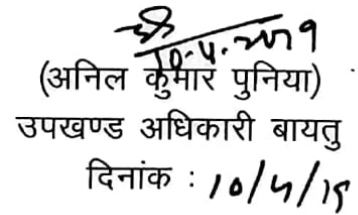 10.4.2019
(अनिल कुमार पुनिया)
उपखण्ड अधिकारी बायतु
दिनांक : 10/4/19